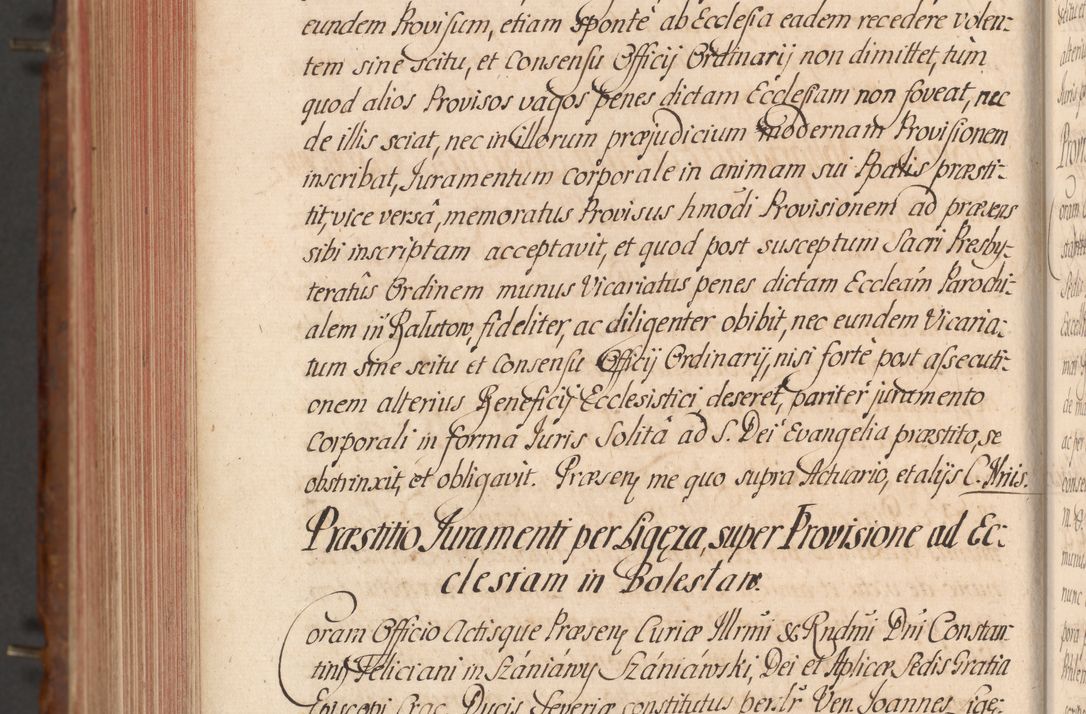 eundem Provisum, etiam sponte ab Ecclesia eadem recedere volen:
tem sine scitu, et Consensu Officij Ordinarij non dimittet, tum
quod alios Provisos vagos penes dictam Ecclesiam non foveat, nec
de illis sciat, nec in illorum præjudicium modernam Provisionem
inscribat, Juramentum Corporale in animam sui Ppalis præsti:
tit, vice versâ, memoratus Provisus hmodi Provisionem ad prævens
sibi inscriptam acceptavit, et quod post susceptum Sacri Presby:
teratûs Ordinem munus Vicariatus penes dictam Eccleam Parochi:
alem in Rałutow, fideliter, ac diligenter obibit, nec eundem Vicaria:
tum sine scitu et Consensu Officij Ordinarij, nisi fortè post assecuti:
onem alterius Beneficij Ecclesistici deseret, pariter juramento
Corporali in forma Juris Solitâ ad S. Dei Evangelia præstito, se
obstrinxit, et obligavit. Præsen, me quo supra Actuario, et alijs
Præstitio Juramenti per Ligęza, super Provisione ad Ec:
clesiam in Bolesław.
Coram Officio Actisque Præsen, Curiæ Illrmi & Rndmi Dni Constan
tini Feliciani in Szániáwy Szániáwski, Dei et Aplicæ Sedis Gratia
Episcopi Crac. Ducis Severiæ constitutus per Ven. Joannes Lige: